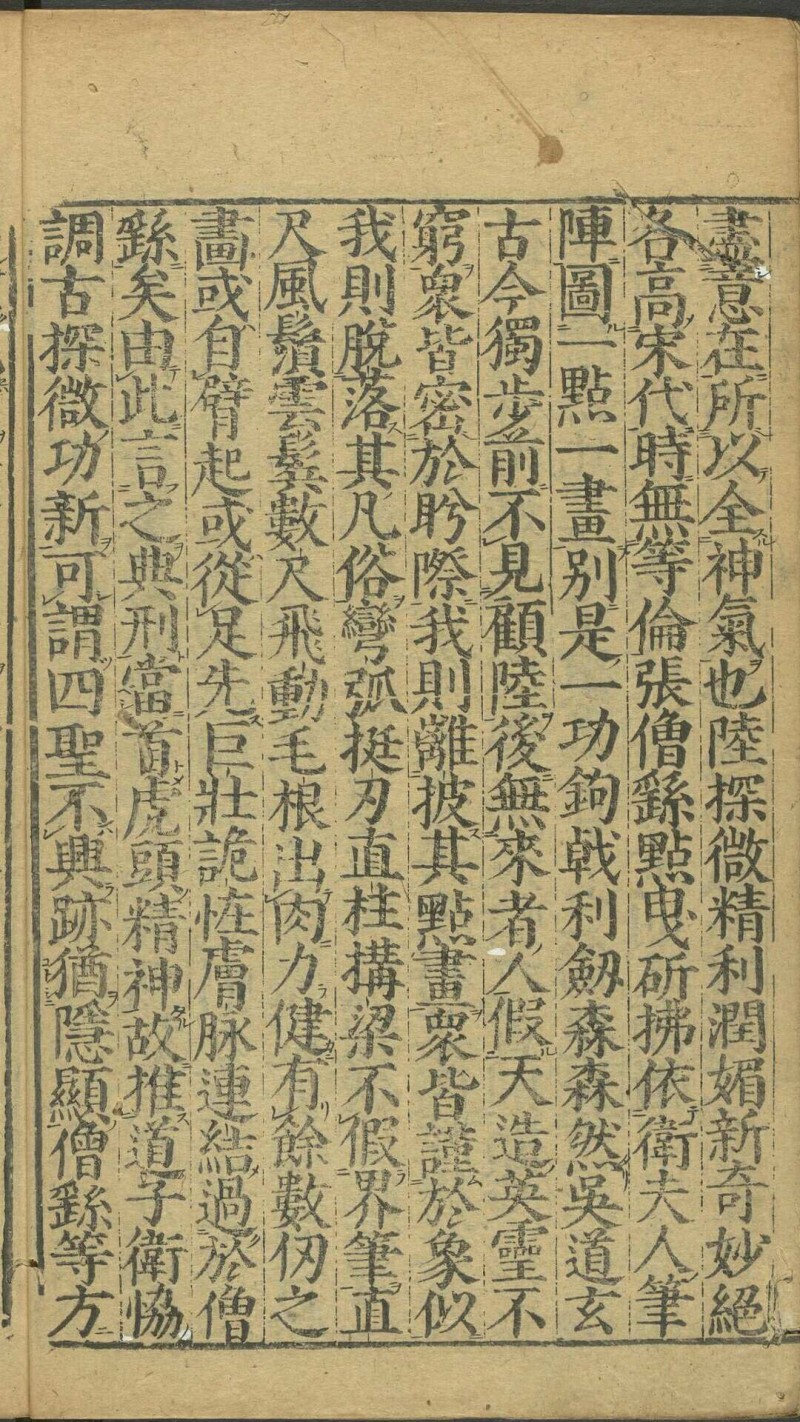 盡意在所以全神氣也陸探微精利潤媚新奇妙絕
名高宋代時無等倫張僧繇點曳斫拂依衛夫人筆
陣圖一點一畫別是一功鉤戟利劒森森然吳道玄
古今獨步前不見顧陸後無來者人假天造英靈不
窮衆皆密於盻際我則離披其點畫衆皆謹於象似
我則脫落其凡俗彎弧挺刃直柱搆梁不假界筆直
尺風鬚雲鬂數尺飛動毛根出肉力健有餘數仞之
畵或自臂起或從足先巨壯詭恠膚脉連結過於僧
繇矣由此言之典刑當首虎頭精神故推道子衛恊
調古探微功新可謂四聖不興跡猶隱顯僧繇等方